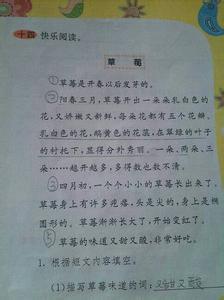 十四 快乐阅读。
草莓
①草莓是开春以后发芽的。
②阳春三月,草莓开出一朵朵乳白色的
花,又娇嫩又新鲜,每朵花都有五个花瓣。
乳白色的花,鹅黄色的花蕊,在翠绿的叶子
的衬托下,显得分外秀丽。一朵、两朵、三
朵……越开越多,多得数也数不清。
③四月初,一个个小小的草莓长出来了。
草莓身上有许多疙瘩,头是尖的,身上是椭
圆形的。草莓渐渐长大了,开始变红了。
⑤草莓的味道又甜又酸,非常好吃。
1. 根据短文内容填空。
(1)描写草莓味道的词:又甜又酸